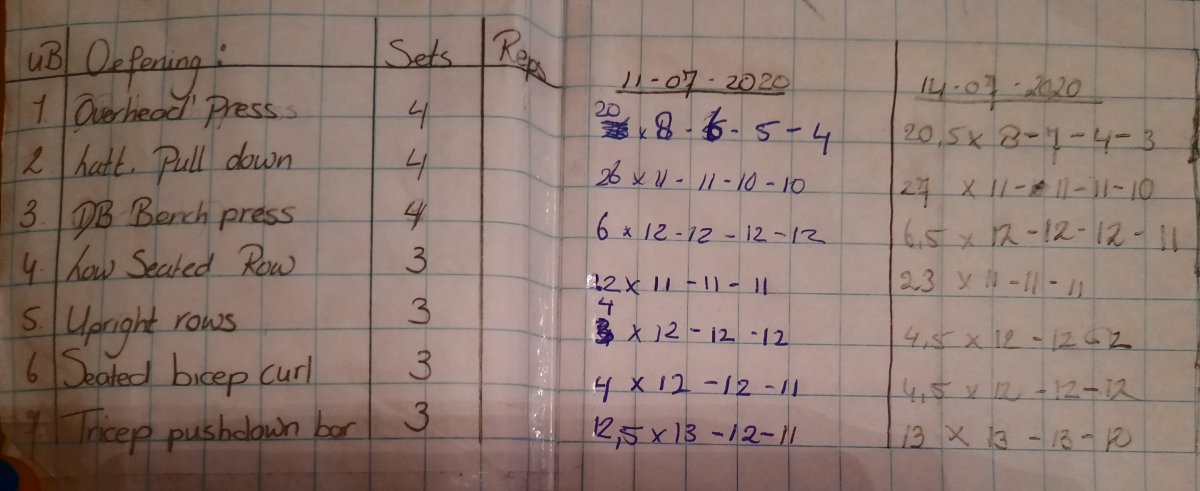 UB Oefening: Sets Reps 11-07-2020 14-07-2020
1 Overhead Press 4 20 x 8 - 6 - 5 - 4 20,5 x 8 - 7 - 4 - 3
2 Latt. Pull down 4 26 x 11 - 11 - 10 - 10 27 x 11 - 11 - 11 - 10
3. DB Bench press 4 6 x 12 - 12 - 12 - 12 6,5 x 12 - 12 - 12 - 11
4. Low Seated Row 3 22 x 11 - 11 - 11 23 x 11 - 11 - 11
5. Upright rows 3 4 x 12 - 12 - 12 4,5 x 12 - 12
6 Seated bicep curl 3 4 x 12 - 12 - 11 4,5 x 12 - 12 - 12
7 Tricep pushdown bar 3 12,5 x 13 - 12 - 11 13 x 13 - 13